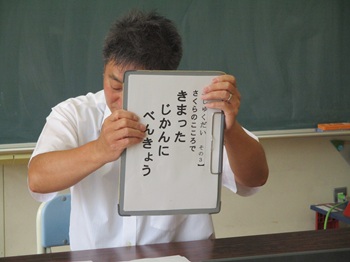 しゅくだい その3】
さくらのこころで
きまった
じかんに
べんきょう